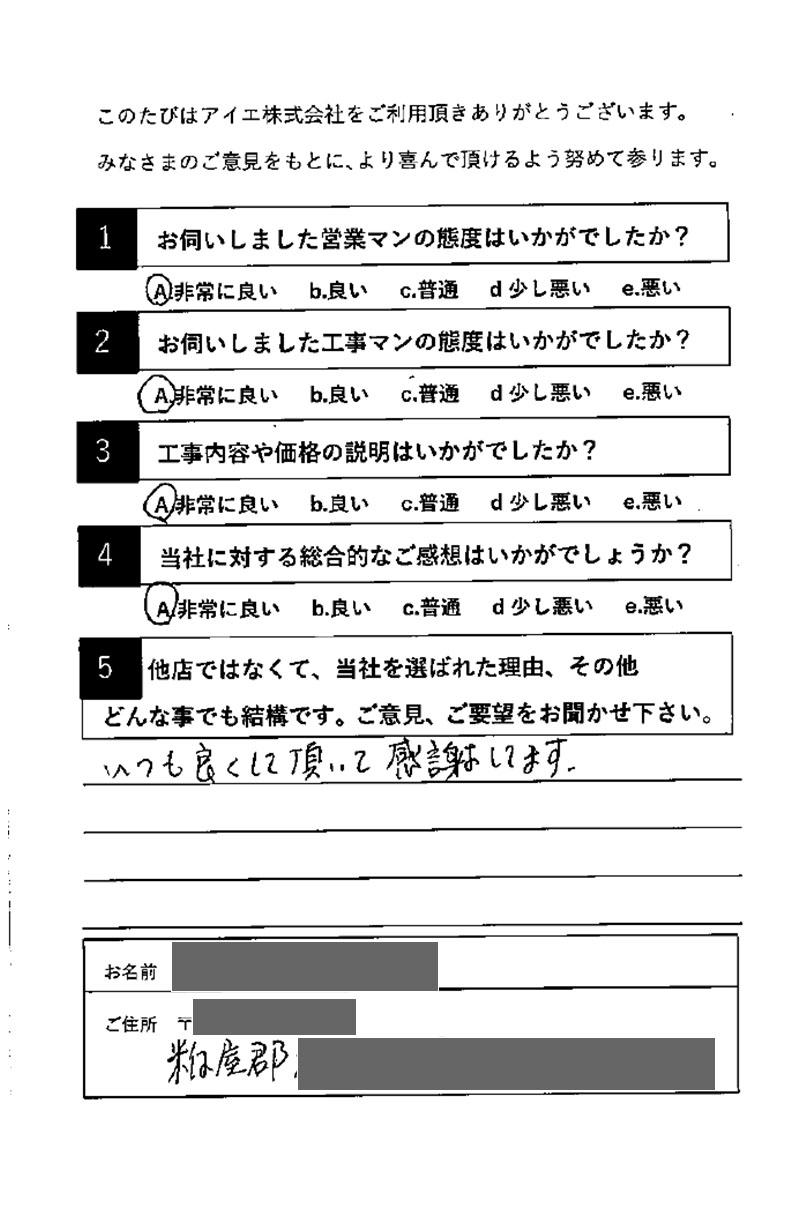 このたびはアイエ株式会社をご利用頂きありがとうございます。
みなさまのご意見をもとに、より喜んで頂けるよう努めて参ります。
1 お伺いしました営業マンの態度はいかがでしたか？
A.非常に良い b.良い c.普通 d 少し悪い e.悪い
2 お伺いしました工事マンの態度はいかがでしたか？
A.非常に良い b.良い c.普通 d 少し悪い e.悪い
3 工事内容や価格の説明はいかがでしたか？
A.非常に良い b.良い c.普通 d 少し悪い e.悪い
4 当社に対する総合的なご感想はいかがでしょうか？
A.非常に良い b.良い c.普通 d 少し悪い e.悪い
5 他店ではなくて、当社を選ばれた理由、その他
どんな事でも結構です。ご意見、ご要望をお聞かせ下さい。
いつも良くして頂いて感謝しています.
お名前
ご住所 〒
粕屋郡